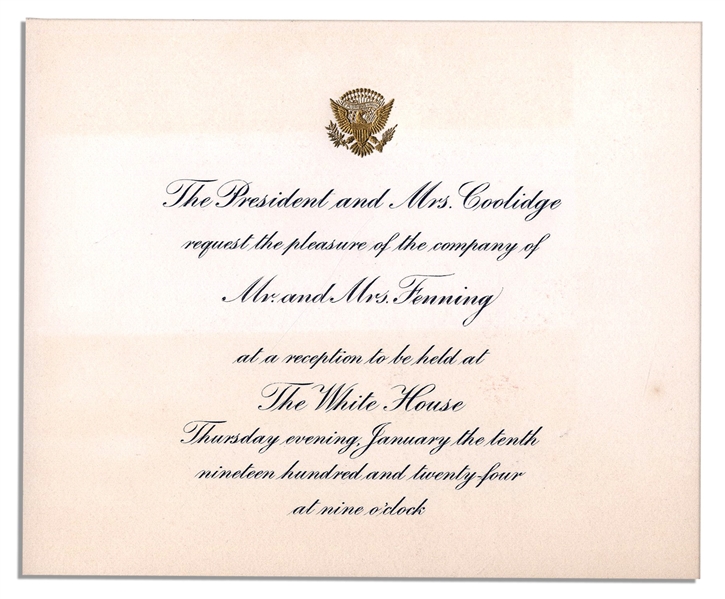 The President and Mrs. Coolidge
request the pleasure of the company of
Mr. and Mrs. Fenning
at a reception to be held at
The White House
Thursday evening, January the tenth
nineteen hundred and twenty-four
at nine o'clock